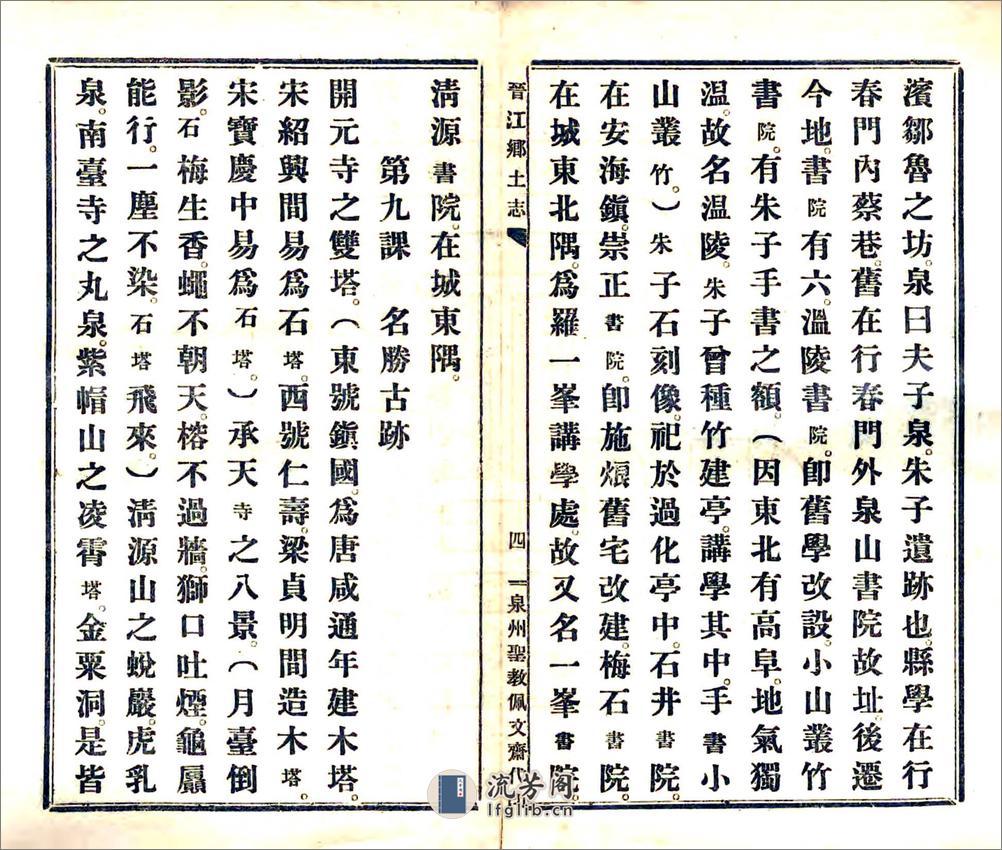 濱鄒魯之坊。泉曰夫子泉。朱子遺跡也。縣學在行
春門內蔡巷。舊在行春門外泉山書院故址。後遷
今地。書院有六。溫陵書院。卽舊學改設。小山叢竹
書院。有朱子手書之額。(因東北有高阜。地氣獨
溫。故名溫陵。朱子曾種竹建亭。講學其中。手書小
山叢竹。)朱子石刻像。祀於過化亭中。石井書院。
在安海鎮。崇正書院。卽施烺舊宅改建。梅石書院。
在城東北隅。爲羅一峯講學處。故又名一峯書院。
晉江鄉土志
四
泉州聖教佩文齋代
淸源書院。在城東隅。
第九課 名勝古跡
開元寺之雙塔。(東號鎮國。爲唐咸通年建木塔。
宋紹興間易爲石塔。西號仁壽。梁貞明間造木塔。
宋寶慶中易爲石塔。)承天寺之八景。(月臺倒
影。石梅生香。蠅不朝天。榕不過牆。獅口吐煙。龜贔
能行。一塵不染。石塔飛來。)淸源山之蛻巖。虎乳
泉。南臺寺之丸泉。紫帽山之凌霄塔。金粟洞。是皆
流芳阁
lfglib.cn